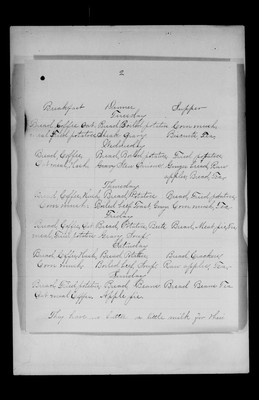 2
Breakfast Dinner Supper
Tuesday
Bread Coffee Oat Bread Boiled potatoes Corn mush
meal Fried potatoes Steak Gravy Biscuits, Tea,
Wednesday
Bread, Coffee Bread Boiled potatoes, Fried potatoes
Oat meal, Gravy Ginger bread Raw
apples, Bread, Tea,
Thursday
Bread, Coffee, Bread Potatoes Bread, Fried potatoes
Corn mush, Boiled beef Gravy Corn mush, Tea
Friday
Bread, Coffee, Oat Bread, Potatoes, Beets Bread, Tea
meal, Fried potatoes Gravy Soup
Saturday
Bread, Coffee, Bread Potatoes Bread,
Corn mush Boiled beef Soup Raw apples, Tea,
Sunday
Bread, Fried potatoes Bread Beans Bread Beans Tea
Oat meal Coffee Apple pie
They have a little milk for their